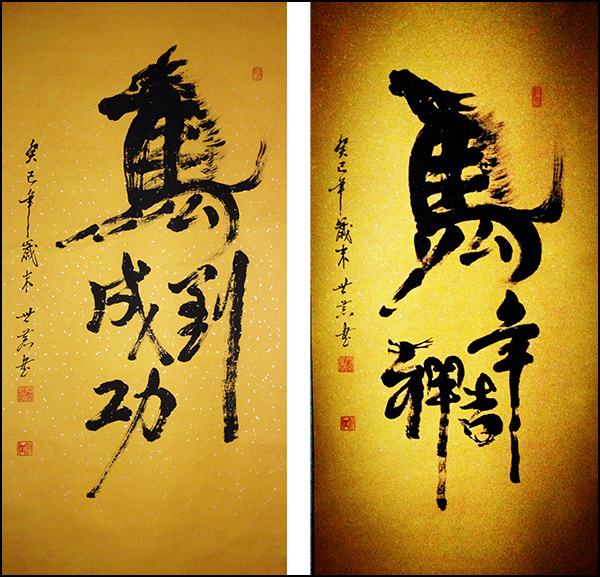 馬
到
成
功
癸巳年歲末 世英書
馬
年
吉
祥
癸巳年歲末 世英書